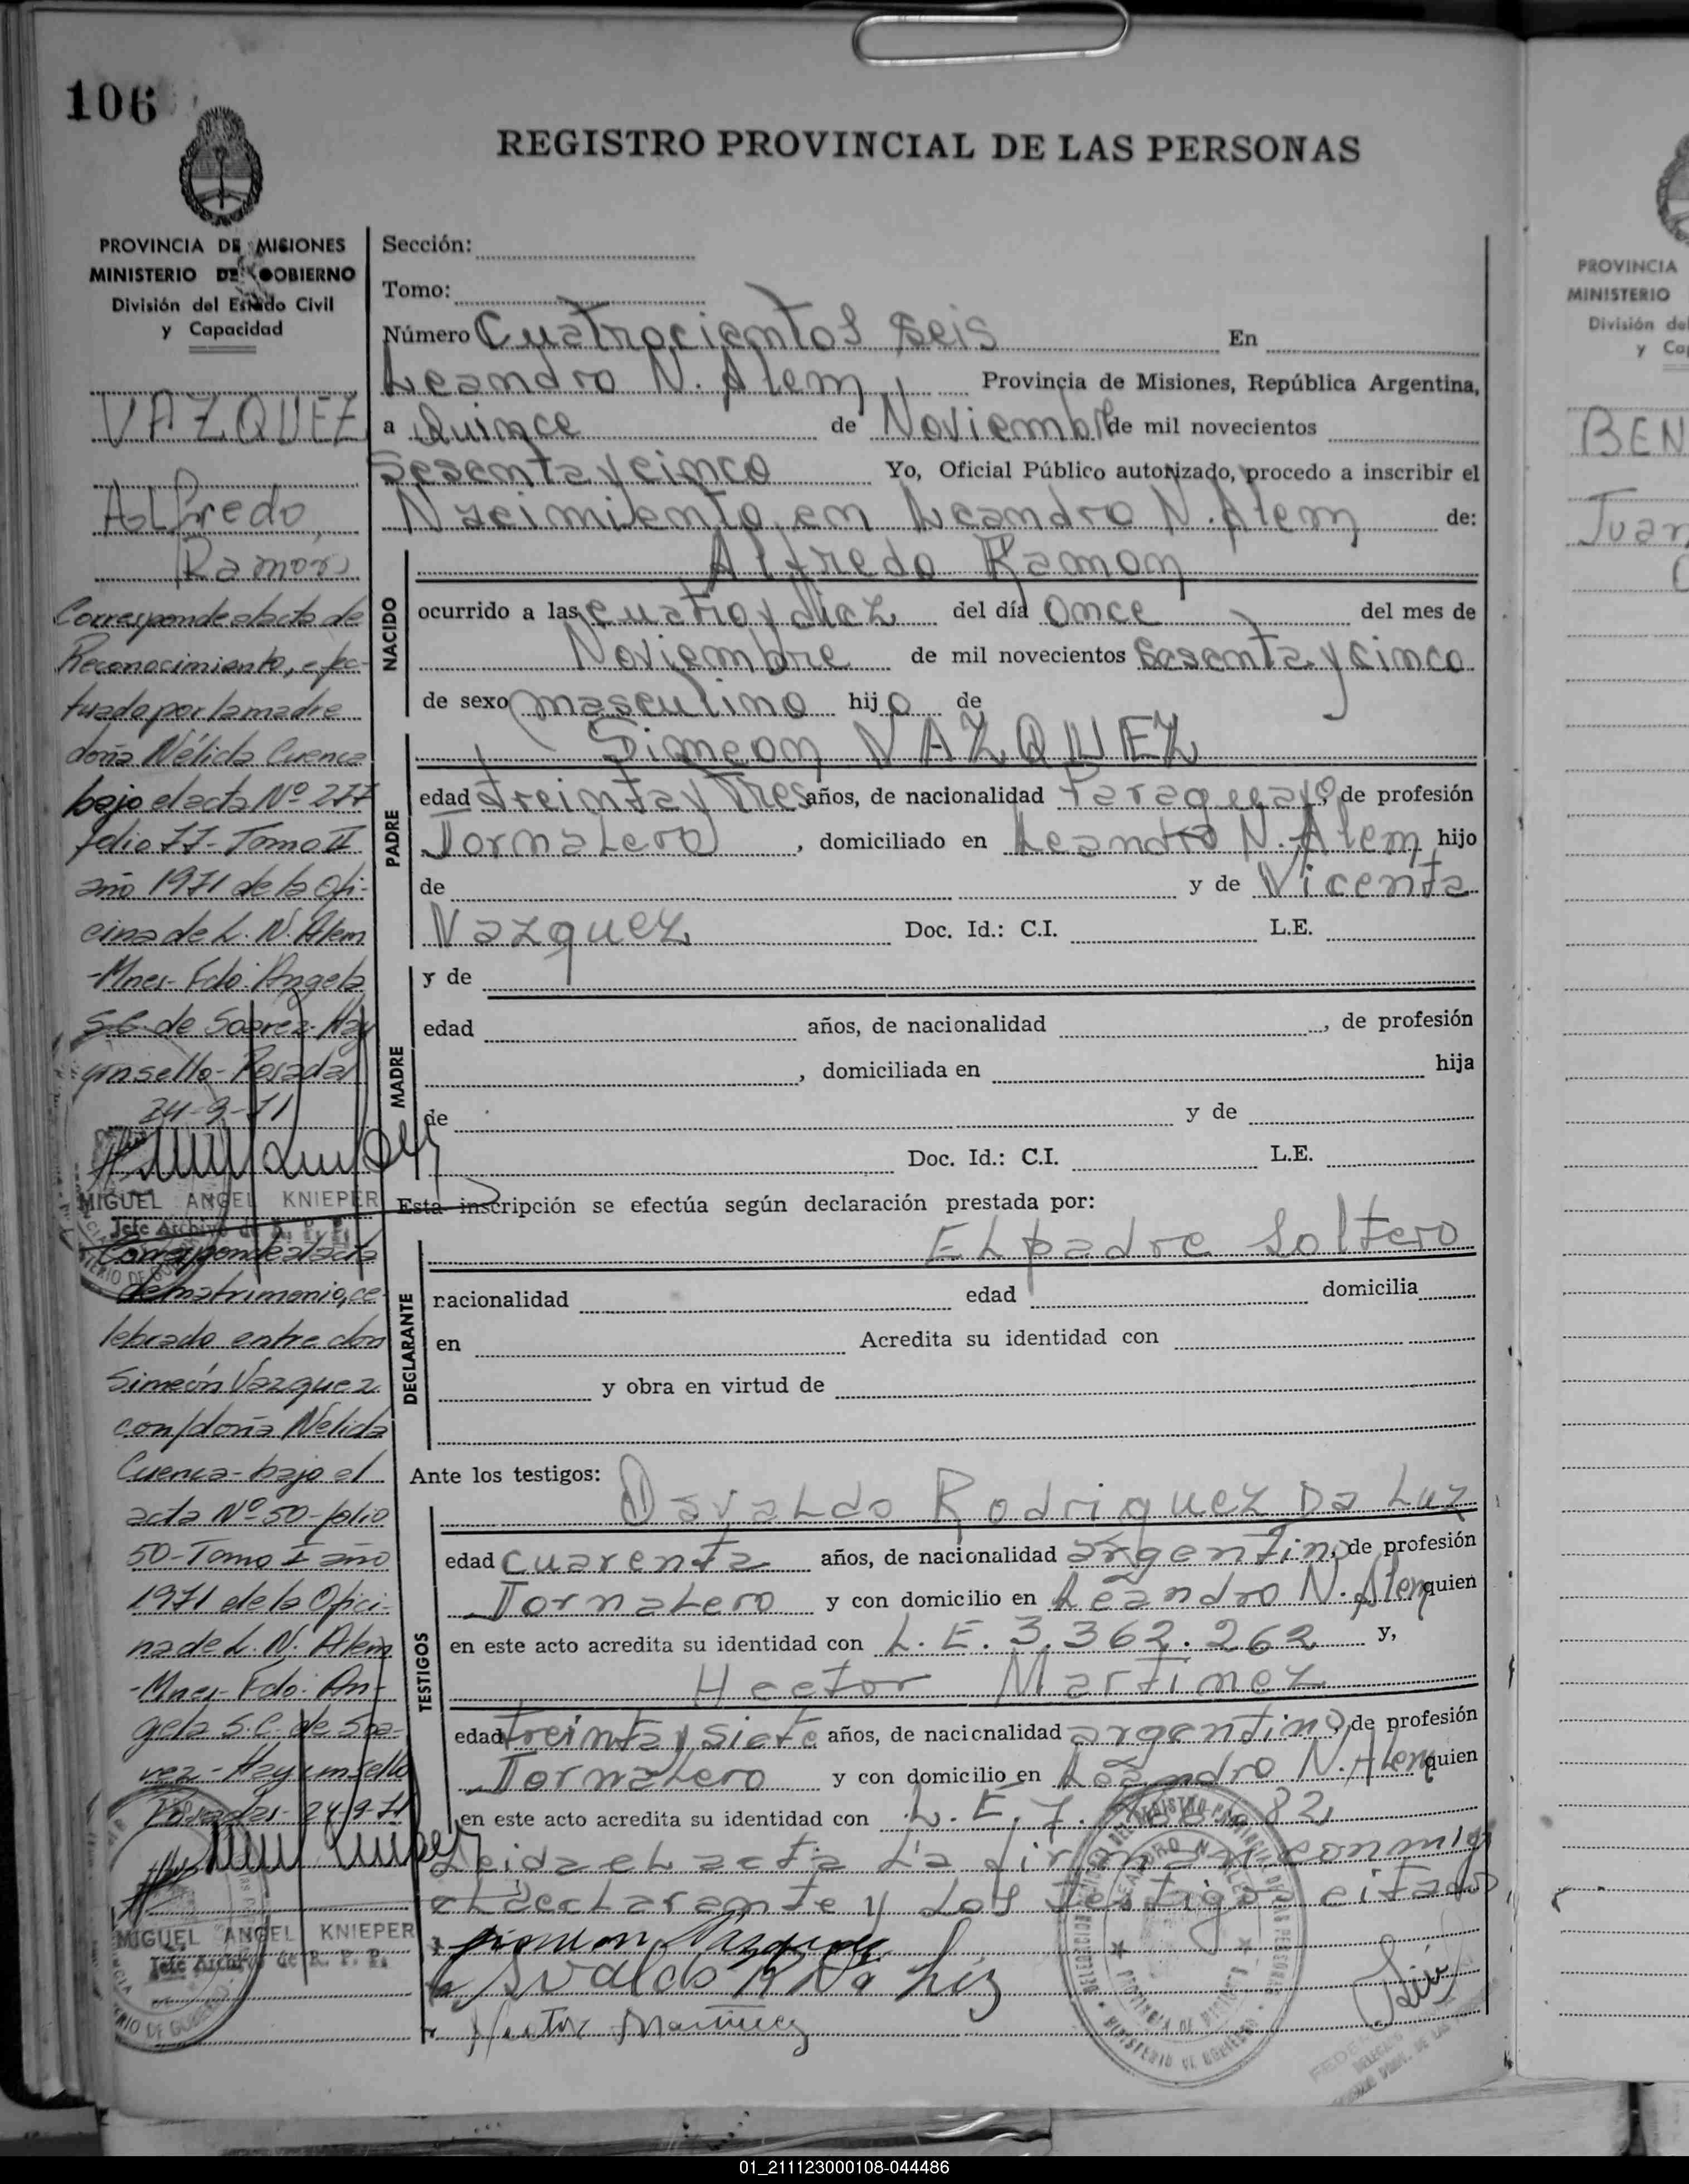 106
REGISTRO PROVINCIAL DE LAS PERSONAS
PROVINCIA DE MISIONES
MINISTERIO DE GOBIERNO
División del Estado Civil
y Capacidad
VAZQUEZ
Alfredo
Ramón
Corresponde al acta de
Reconocimiento, efec-
tuado por la madre
doña Nélida Cuenca
bajo el acta Nº 277
folio 77 - Tomo II
año 1971 de la Ofi-
cina de L. N. Alem
- Mnes - Fdo: Angela
S.C. de Soarez - Hay
un sello - Posadas
24-9-71
MIGUEL ANGEL KNIEPER
Jefe Archivo de R. P. P.
Corresponde al acta
de matrimonio, ce-
lebrado entre don
Simeón Vazquez
con/doña Nélida
Cuenca - bajo el
acta Nº 50 - folio
50 - Tomo I año
1971 de la Ofici-
na de L. N. Alem
- Mnes - Fdo: An-
gela S.C. de Soa-
rez - Hay un sello
Posadas - 24-9-71
MIGUEL ANGEL KNIEPER
Jefe Archivo de R. P. P.
Sección:
Tomo:
Número Cuatrocientos seis En
Leandro N. Alem, Provincia de Misiones, República Argentina,
a Quince de Noviembre de mil novecientos
Sesenta y cinco Yo, Oficial Público autorizado, procedo a inscribir el
Nacimiento en Leandro N. Alem de:
Alfredo Ramon
NACIDO
ocurrido a las cuatro y diez del día Once del mes de
Noviembre de mil novecientos Sesenta y cinco
de sexo masculino hijo de
Simeon VAZQUEZ
PADRE
edad treinta y tres años, de nacionalidad Paraguayo, de profesión
Jornalero, domiciliado en Leandro N. Alem hijo
de y de Vicenta
Vazquez Doc. Id.: C.I. L.E.
y de
MADRE
edad años, de nacionalidad , de profesión
, domiciliada en hija
de y de
Doc. Id.: C.I. L.E.
Esta inscripción se efectúa según declaración prestada por:
El padre Soltero
DECLARANTE
nacionalidad edad domicilia
en Acredita su identidad con
y obra en virtud de
Ante los testigos:
Osvaldo Rodriguez Da Luz
TESTIGOS
edad cuarenta años, de nacionalidad argentino, de profesión
Jornalero y con domicilio en Leandro N. Alem quien
en este acto acredita su identidad con L.E. 3.362.262 y,
Hector Martinez
edad treinta y siete años, de nacionalidad argentino, de profesión
Jornalero y con domicilio en Leandro N. Alem quien
en este acto acredita su identidad con L.E. 7. 82
Leida el acta La firman conmigo
el declarante y Los testigos citados
Simeon Vazquez
Osvaldo R Da Luz
Hector Martinez
PROVINCIA
MINISTERIO
División del
y Cap
BEN
Juan
01_211123000108-044486